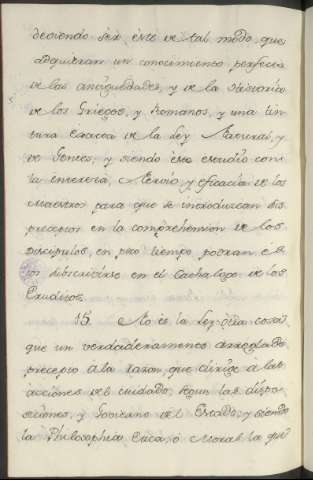 deviendo ser este de tal modo, que
adquieran un conocimiento perfecto
de las antiguedades, y de la Historia
de los Griegos, y Romanos, y una tin
tura exacta de la Ley Natural, y
de Gentes, y siendo este estudio con
la entereza, Nervio, y eficacia de los
Maestros para que se introduzcan
en la comprehension de los
discipulos, en poco tiempo podran es
tos subscribirse en el Cathalogo de los
Eruditos.
15. No es la Ley otra cosa,
que un verdaderamente arreglado
precepto a la razon, que dirige a las
acciones del cuidado, segun las dispo
siciones, y Govierno del Estado, y siendo
la Philosophia Etica, o Moral la que